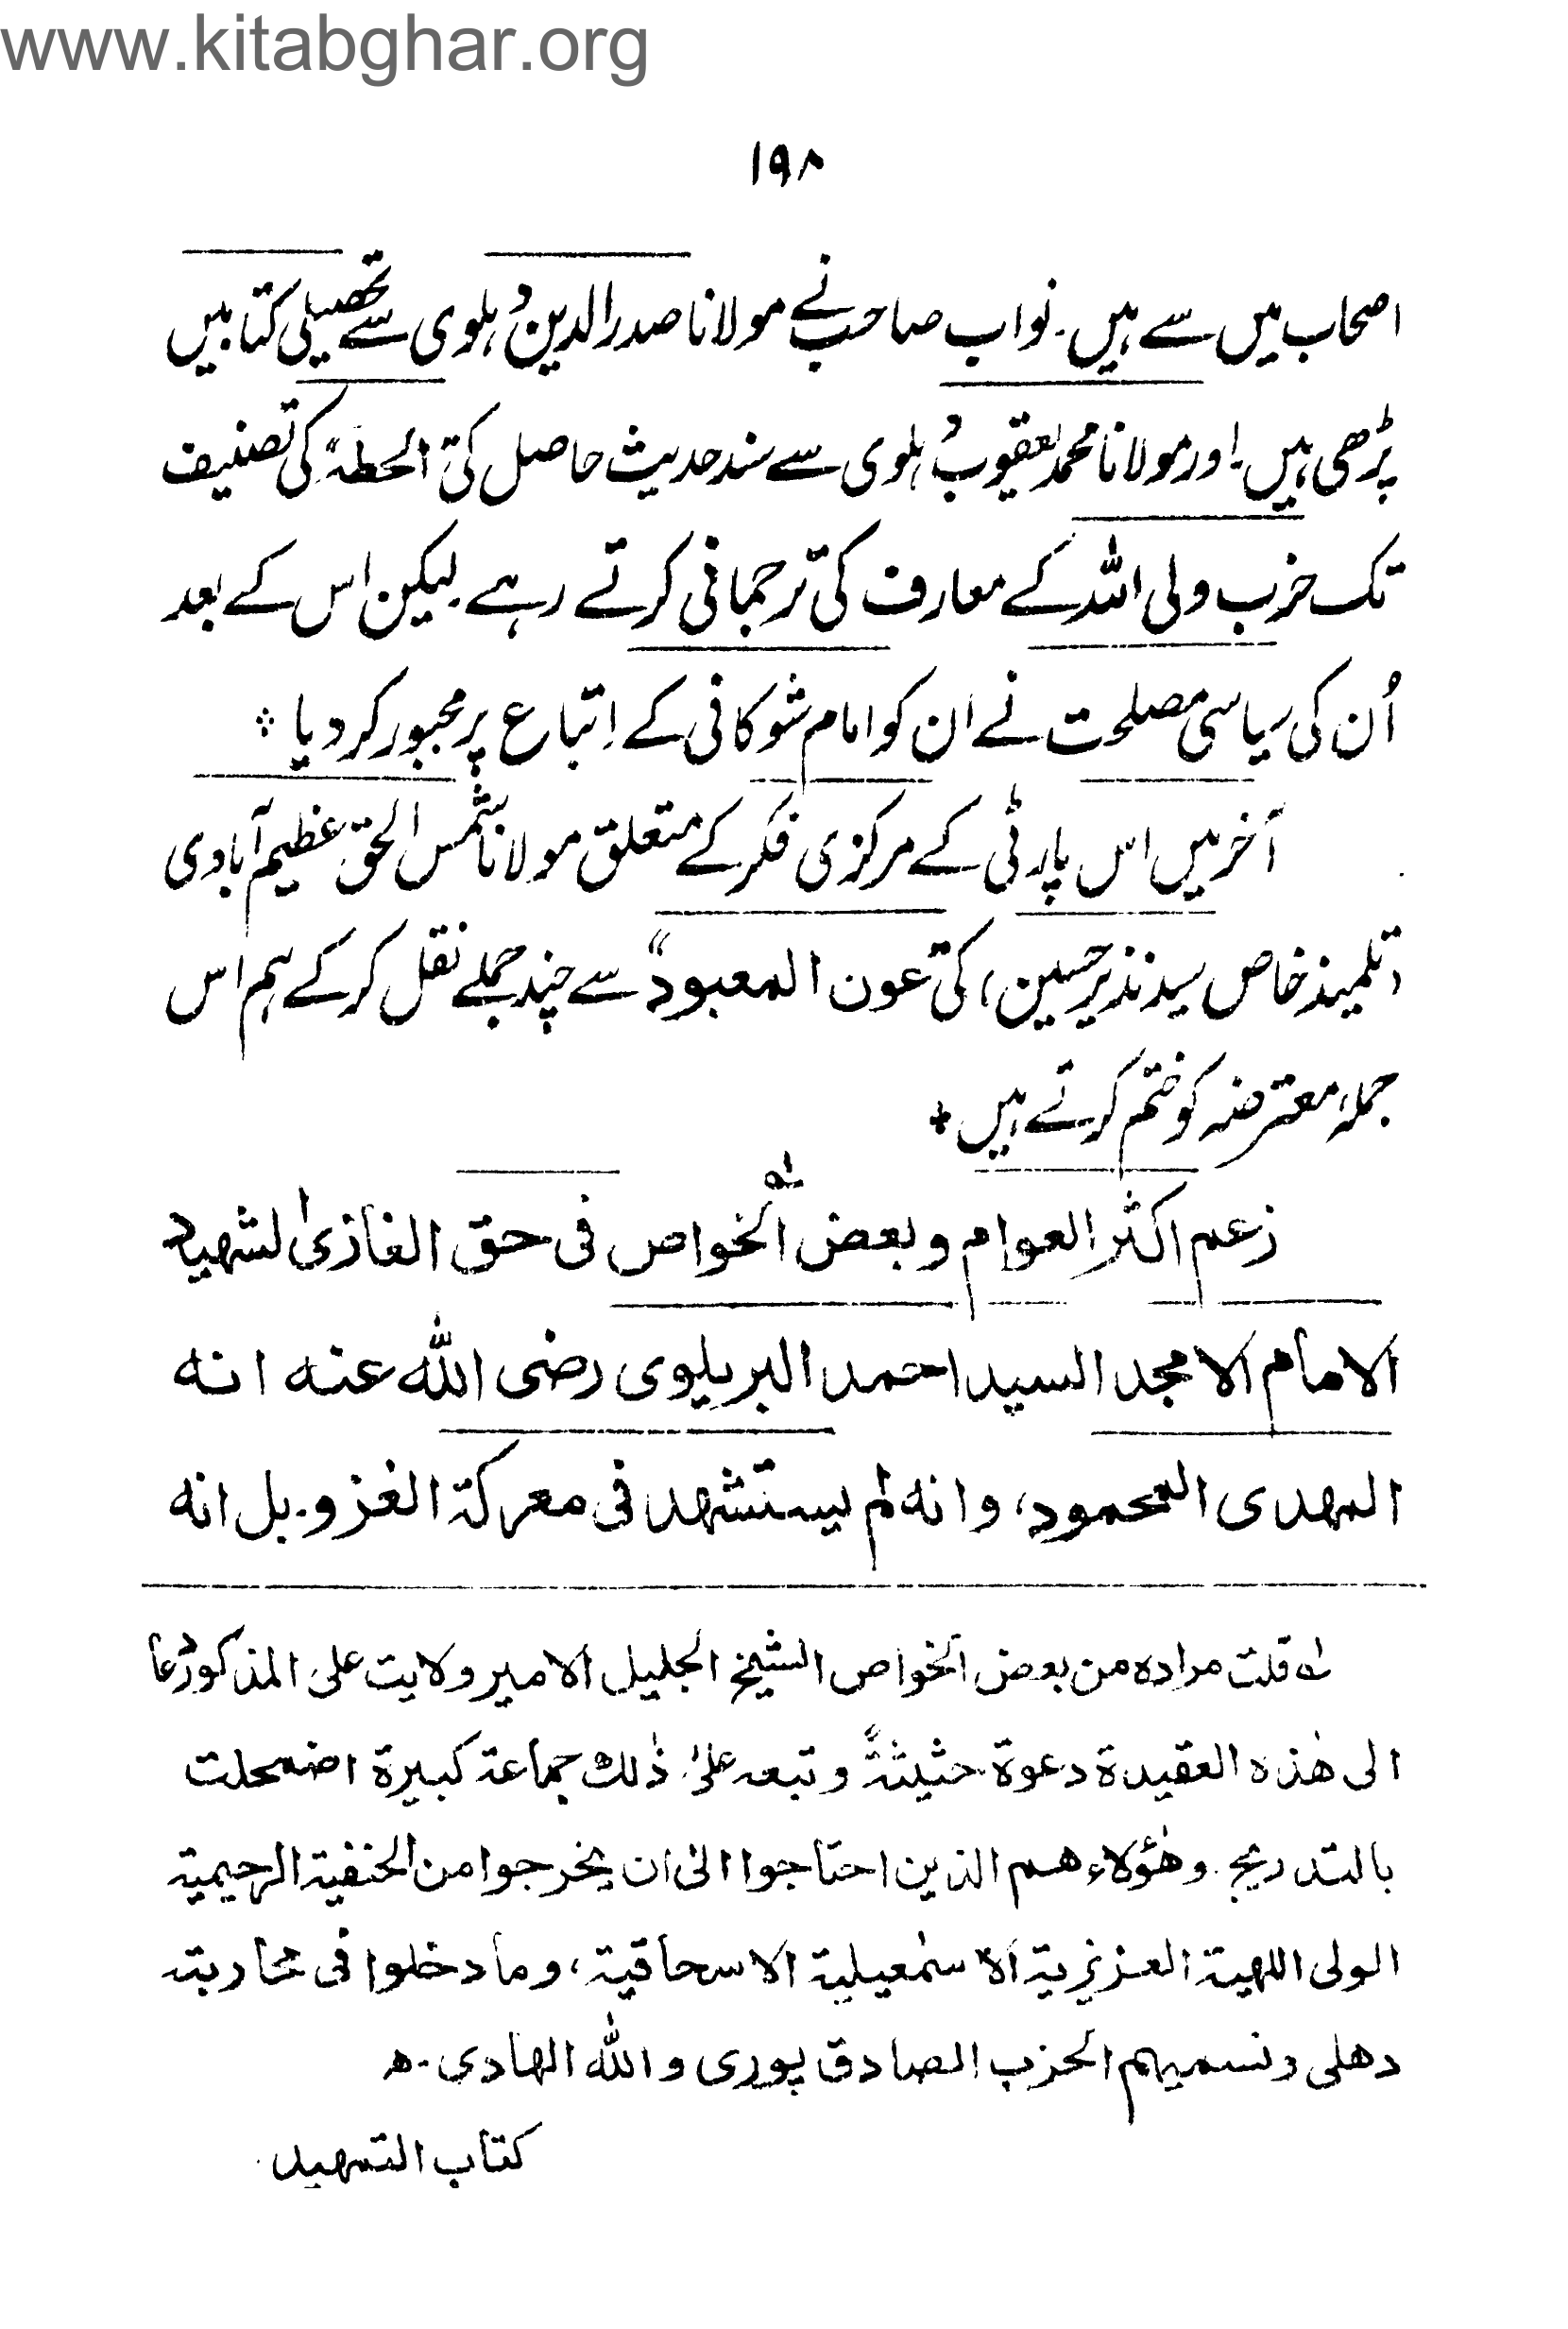 www.kitabghar.org
۱۹۸
اصحاب میں سے ہیں۔ نواب صاحب نے مولانا صدر الدین دہلوی سے تحصیلی کتابیں
پڑھی ہیں۔ اور مولانا محمد یعقوب دہلوی سے سند حدیث حاصل کی "الحطہ" کی تصنیف
تک حزب ولی اللہ کے معارف کی ترجمانی کرتے رہے۔ لیکن اس کے بعد
اُن کی سیاسی مصلحت نے ان کو امام شوکانی کے اِتباع پر مجبور کر دیا ∴
آخر میں اس پارٹی کے مرکزی فکر کے متعلق مولانا شمس الحق عظیم آبادی
(تلمیذ خاص سید نذیر حسین) کی "عون المعبود" سے چند جملے نقل کر کے ہم اس
جملۂ معترضہ کو ختم کرتے ہیں +
زعم اکثر العوام وبعض الخواص لہ فی حق الغازی الشھید
الامام الامجد السید احمد البریلوی رضی اللہ عنہ انہ
المھدی المحمود، وانہ لم یستشھد فی معرکۃ الغزو۔ بل انہ
لہ قلت مرادہ من بعض الخواص الشیخ الجلیل الامیر ولایت علی المذکور دعا
الی ھٰذہ العقیدۃ دعوۃ حثیثۃً وتبعہ علیٰ ذٰلک جماعۃ کبیرۃ اضمحلت
بالتدریج۔ وھٰؤلاء ھم الذین احتاجوا الیٰ ان یخرجوا من الحنفیۃ الرحیمیۃ
الولی اللھیۃ العزیزیۃ الاسمٰعیلیۃ الاسحاقیۃ، وما دخلوا فی محاربۃ
دھلی ونسمیھم الحزب الصادق پوری واللہ الھادی۔ ھ
کتاب التمھید۔